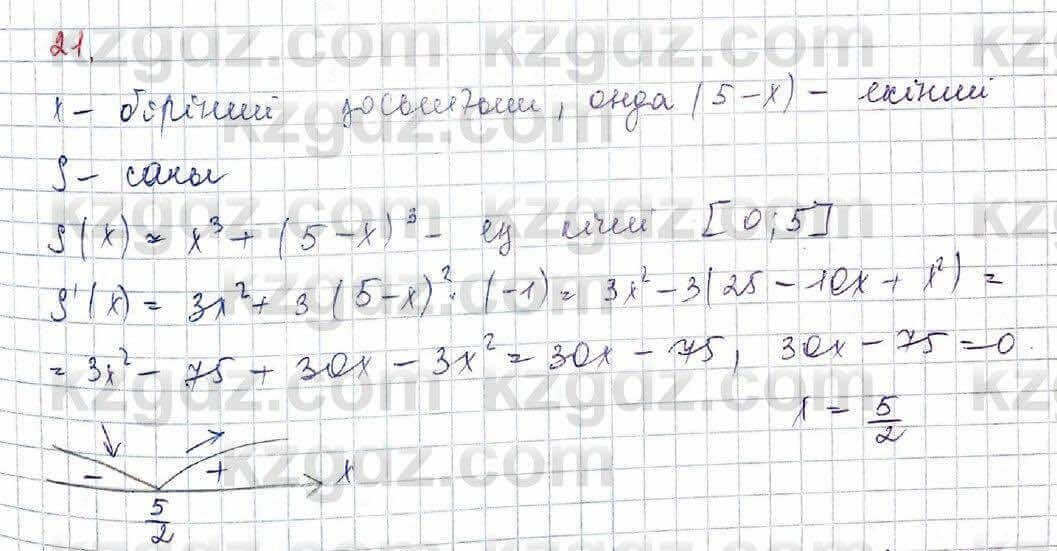 21.
x – бірінші қосылғыш, онда (5-x) – екінші
S – саны
S(x) = x³ + (5-x)³ – ең кіші [0;5]
S'(x) = 3x² + 3(5-x)²·(-1) = 3x² - 3(25 - 10x + x²) =
= 3x² - 75 + 30x - 3x² = 30x - 75, 30x - 75 = 0.
x = 5/2
- + x
5/2
kzgdz.com